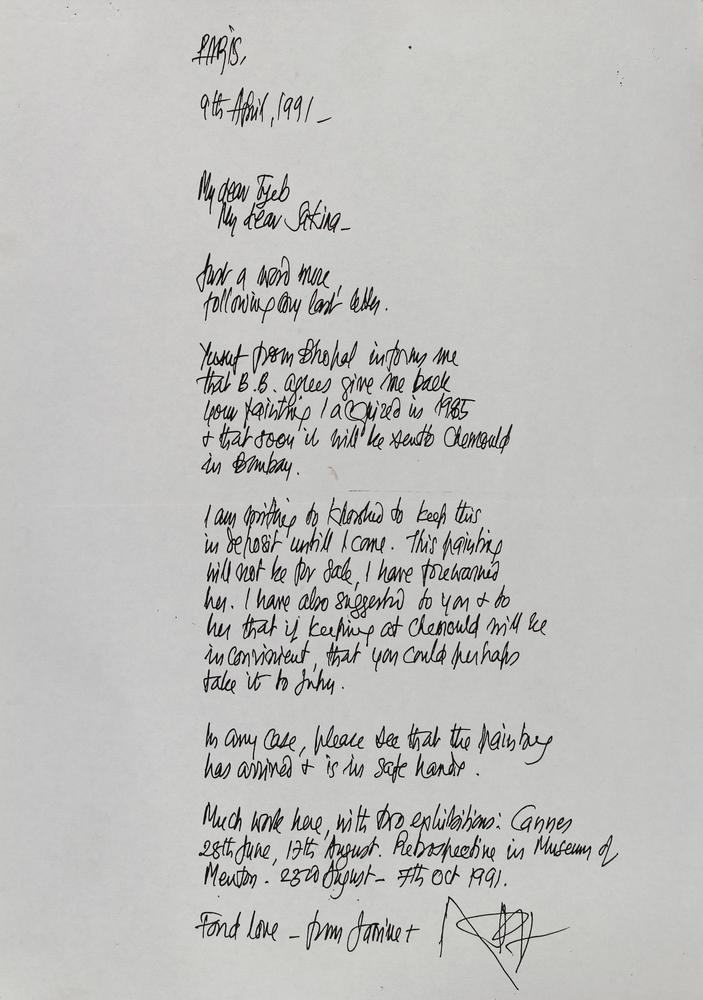 PARIS,
9th April, 1991 _
My dear Tyeb
My dear Sakina _
Just a word more,
following my last letter.
Yusuf from Bhopal informs me
that B.B. agrees give me back
your painting I acquired in 1985
+ that soon it will be sent to Chemould
in Bombay.
I am writing to Khorshed to keep this
in deposit untill I come. This painting
will not be for sale, I have forewarned
her. I have also suggested to you + to
her that if keeping at Chemould will be
inconvinient, that you could perhaps
take it to Juhu.
In any case, please see that the painting
has arrived + is in safe hands.
Much work here, with two exhibitions: Cannes
28th June, 17th August. Retrospective in Museum of
Menton - 23rd August - 7th Oct 1991.
Fond love _ from Janine +